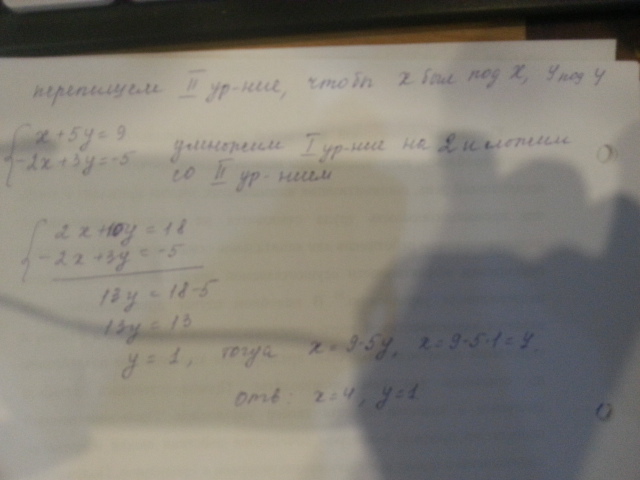 перепишем II ур-ние, чтобы x был под x, y под y
{ x+5y=9 умножим I ур-ние на 2 и сложим
-2x+3y=-5 со II ур-нием
{ 2x+10y=18
-2x+3y=-5
13y=18-5
13y=13
y=1, тогда x=9-5y, x=9-5·1=4.
отв: x=4, y=1